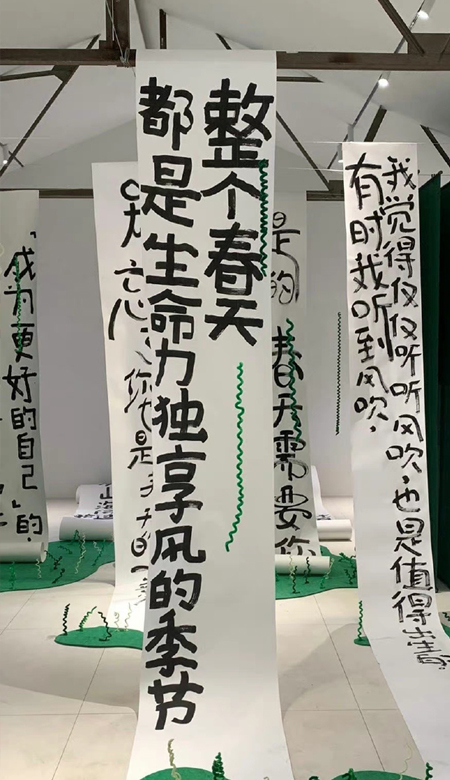 整个春天
都是生命力独享风的季节
有时我听到风吹，
我觉得仅仅听听风吹，也是值得出生
是的
春天需要你
“成为更好的自己”的，